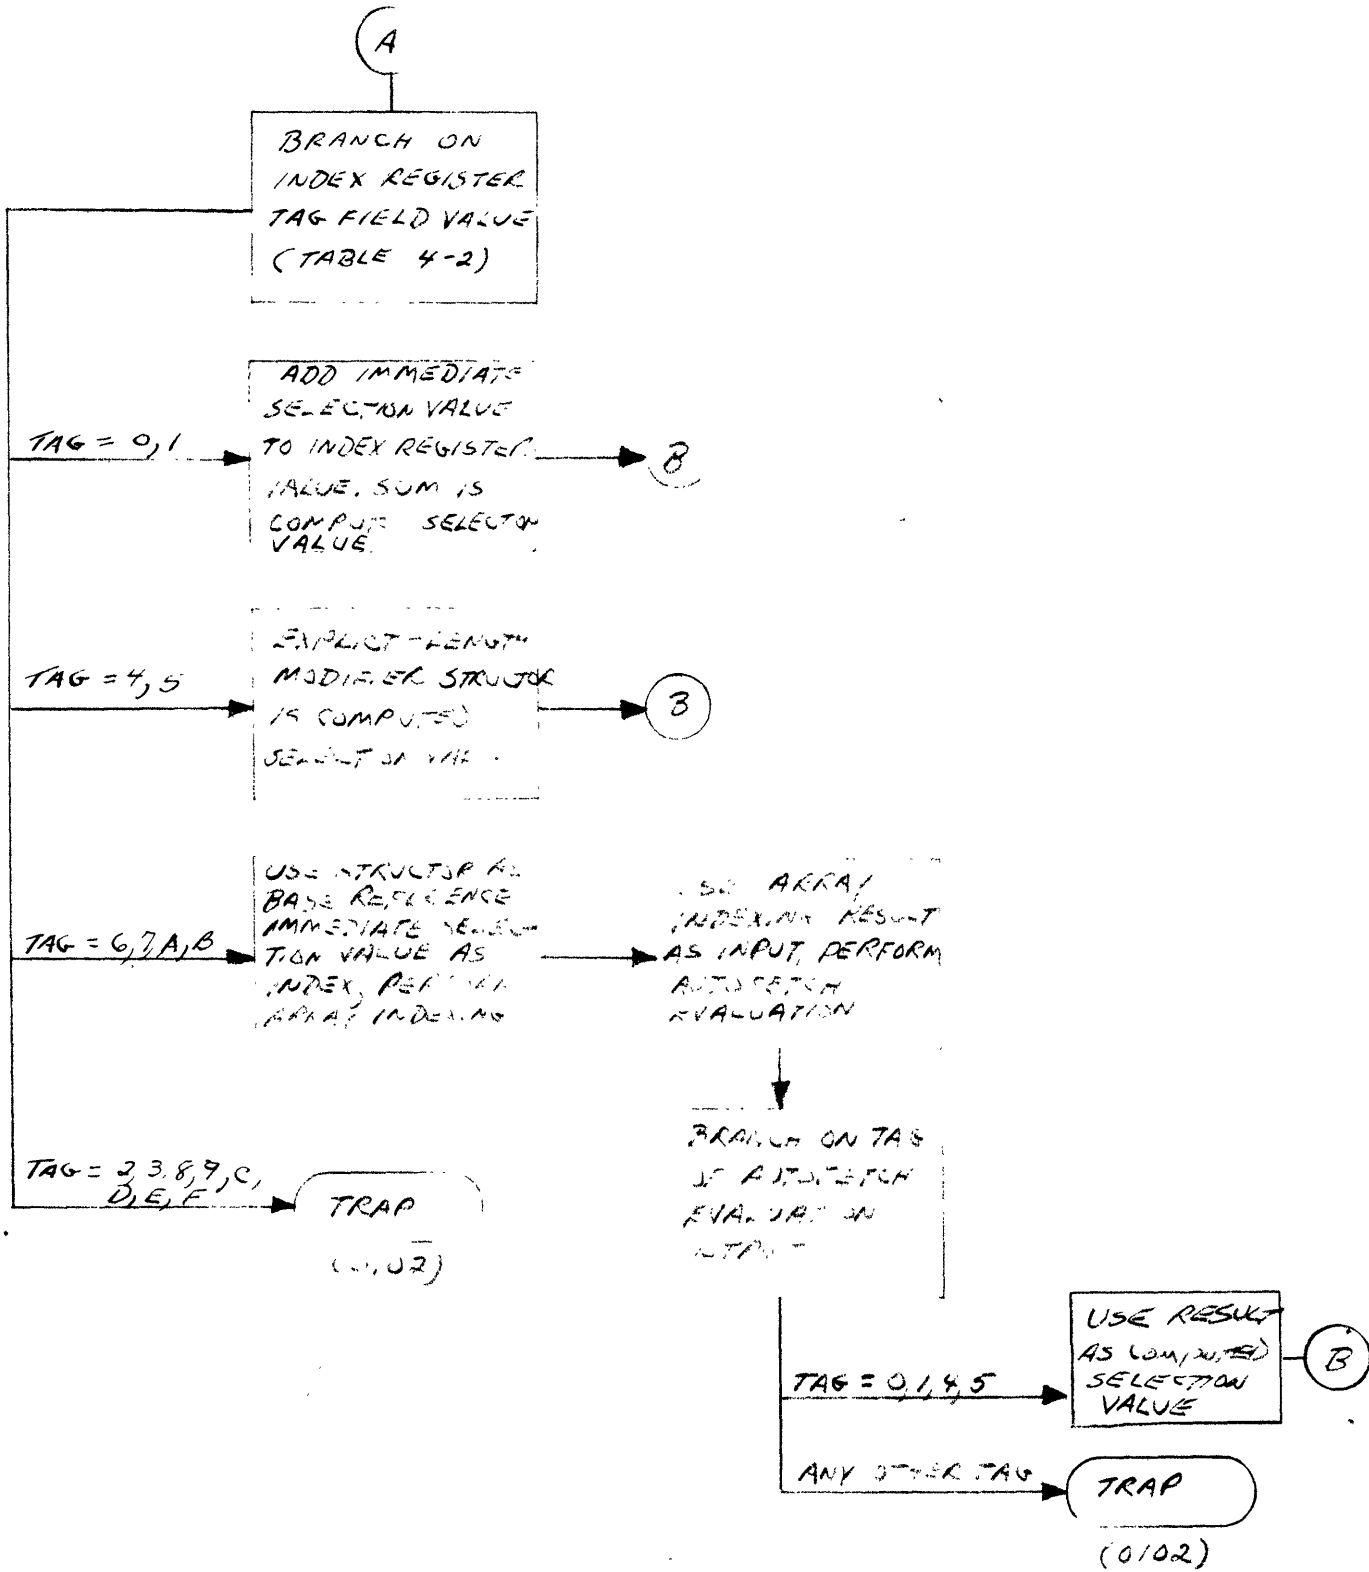 A
BRANCH ON
INDEX REGISTER
TAG FIELD VALUE
(TABLE 4-2)
TAG = 0,1
ADD IMMEDIATE
SELECTION VALUE
TO INDEX REGISTER
VALUE. SUM IS
SELECTION
VALUE.
B
TAG = 4,5
EXPLICT-LENGTH
MODIFIER STRUCTOR
IS COMPUTED
SELECTION
B
TAG = 6,7,A,B
USE STRUCTOR AS
BASE REFERENCE
IMMEDIATE SELEC-
TION VALUE AS
INDEX, PERFORM
ARRAY INDEXING
USE ARRAY
INDEXING RESULT
AS INPUT, PERFORM
AUTOFETCH
EVALUATION
BRANCH ON TAG
OF AUTOFETCH
EVALUATION
TAG = 2,3,8,9,C,
D,E,F
TRAP
TAG = 0,1,4,5
USE RESULT
AS COMPUTED
SELECTION
VALUE
B
ANY OTHER TAG
TRAP
(0102)